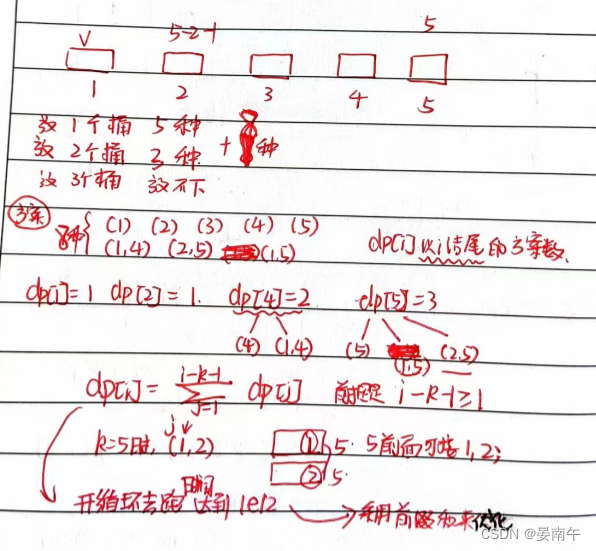 V 5-2-1 5
1 2 3 4 5
放1个桶 5种
放2个桶 3种 + 种
放3个桶 放不下
方案
8种{ (1) (2) (3) (4) (5)
(1,4) (2,5) (1,5)
dp[i]以i结尾的方案数.
dp[1]=1 dp[2]=1. dp[4]=2 dp[5]=3
(4) (1,4) (5) (1,5) (2,5)
dp[i]= i-k-1 ∑ j=1 dp[j] 前提是 i-k-1≥1
j
k=5时, (1,2) ① 5. 5前面可接1,2;
② 5.
时间
开循环去跑 达到1e12 → 利用前缀和来优化
CSDN @晏南午